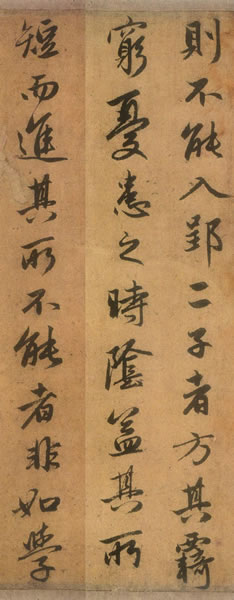 則不能入郢二子者方其羇
窮憂患之時陰益其所
短而進其所不能者非如學